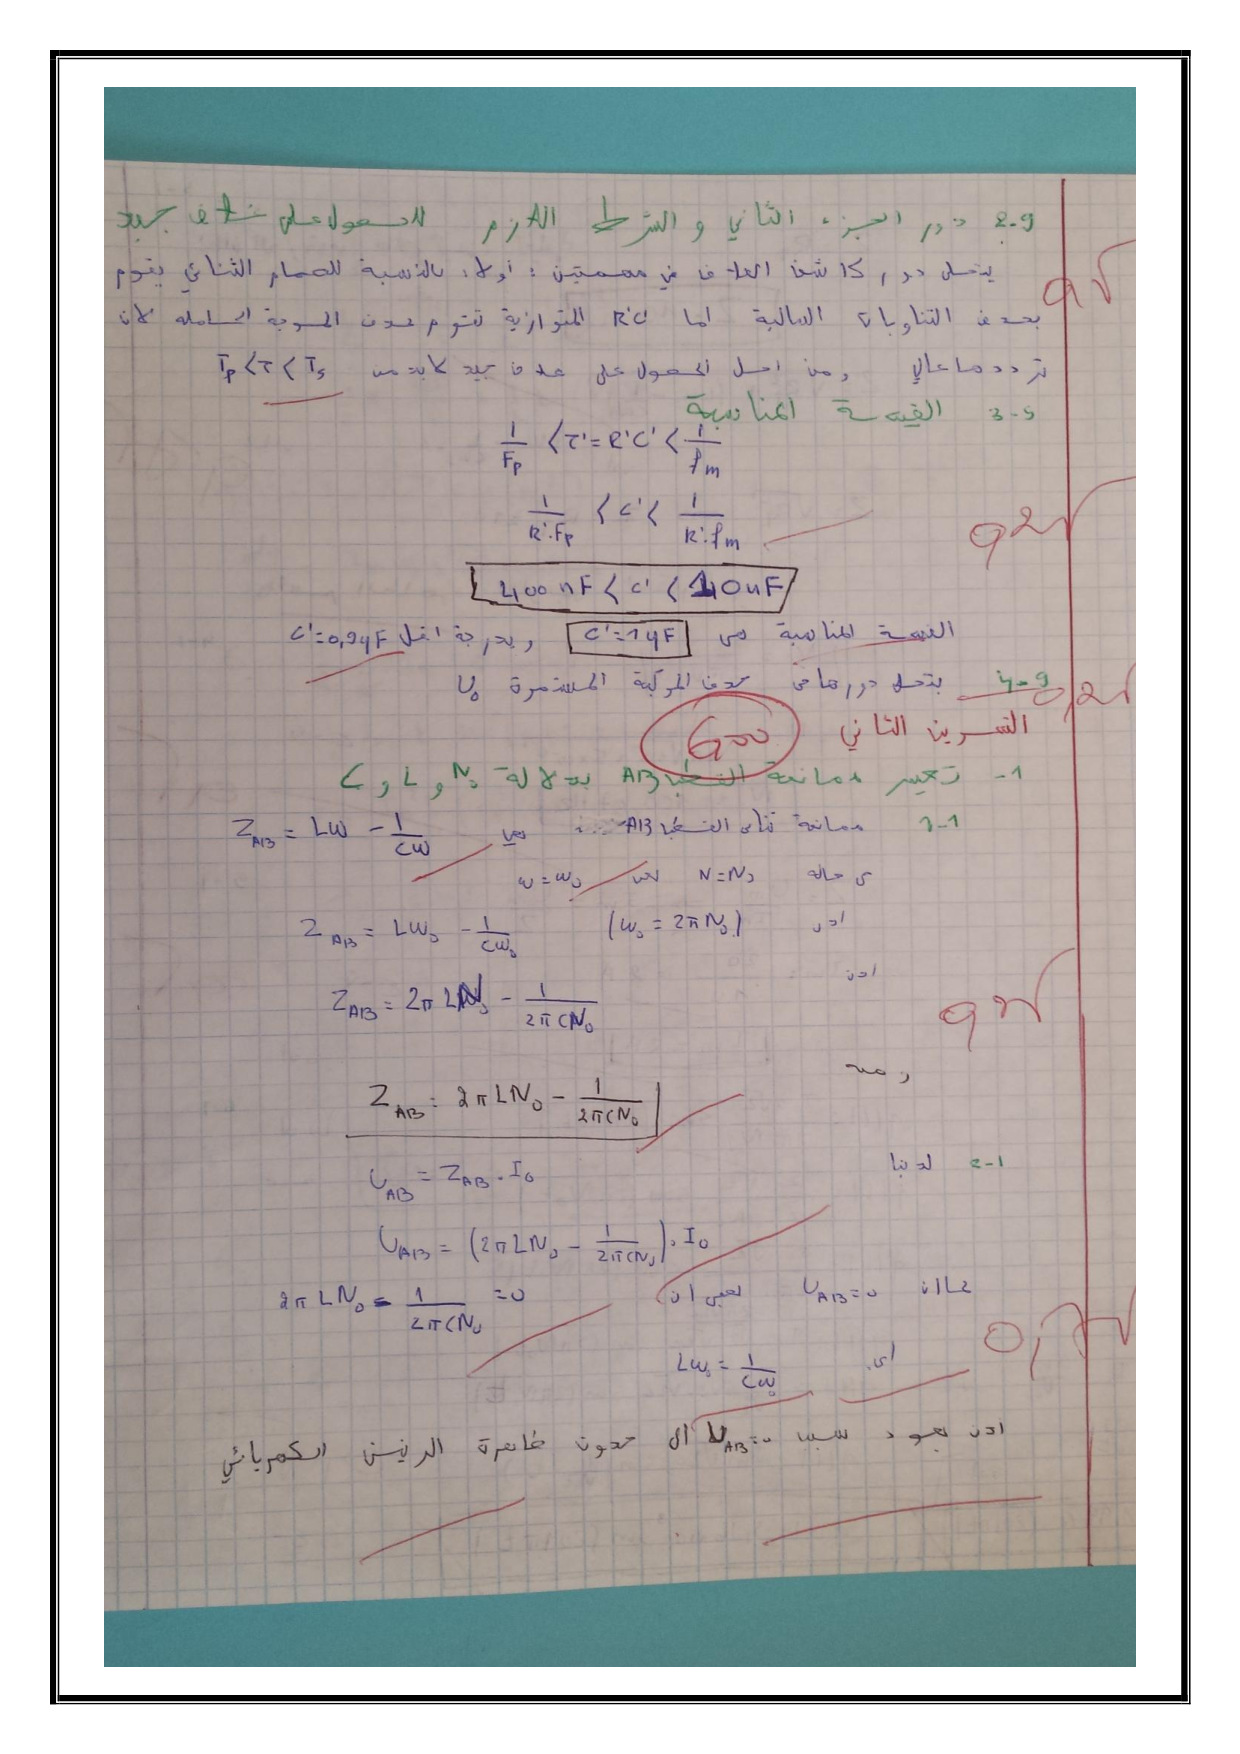 2-9 دور الجزء الثاني و الشرط اللازم للحصول على غلاف جيد
يتمثل دور كاشف الغلاف في مهمتين : أولا، بالنسبة للصمام الثنائي يقوم
بحذف التناوبات السالبة اما R'C' المتوازية تقوم بحذف الموجة الحاملة لان
ترددها عالي ومن اجل الحصول على غلاف جيد لابد من Tp < τ < Ts
0,5
3-5 القيمة المناسبة
1/Fp < τ' = R'C' < 1/fm
1/R'.Fp < C' < 1/R'.fm
C' <
القيمة المناسبة هي C'=1μF وبدرجة اقل C'=0,9μF
4-9 يتمثل دورها في حذف المركبة المستمرة U₀
0,25
التمرين الثاني
1- تعبير ممانعة القطب AB بدلالة N₀ و L و C
1-1 ممانعة ثنائي القطب AB هي Z_AB = Lω - 1/Cω
في حالة N=N₀ يعني ω=ω₀
اذن (ω₀ = 2πN₀) Z_AB = Lω₀ - 1/Cω₀
اذن
Z_AB = 2πLN₀ - 1/2πCN₀
ومنه
Z_AB = 2πLN₀ - 1/2πCN₀
2-1 لدينا
U_AB = Z_AB . I₀
U_AB = (2πLN₀ - 1/2πCN₀) . I₀
بما ان U_AB=0 يعني ان 2πLN₀ - 1/2πCN₀ =0
اي Lω₀ = 1/Cω₀
اذن يعود سبب U_AB=0 الى حدوث ظاهرة الرنين الكهربائي